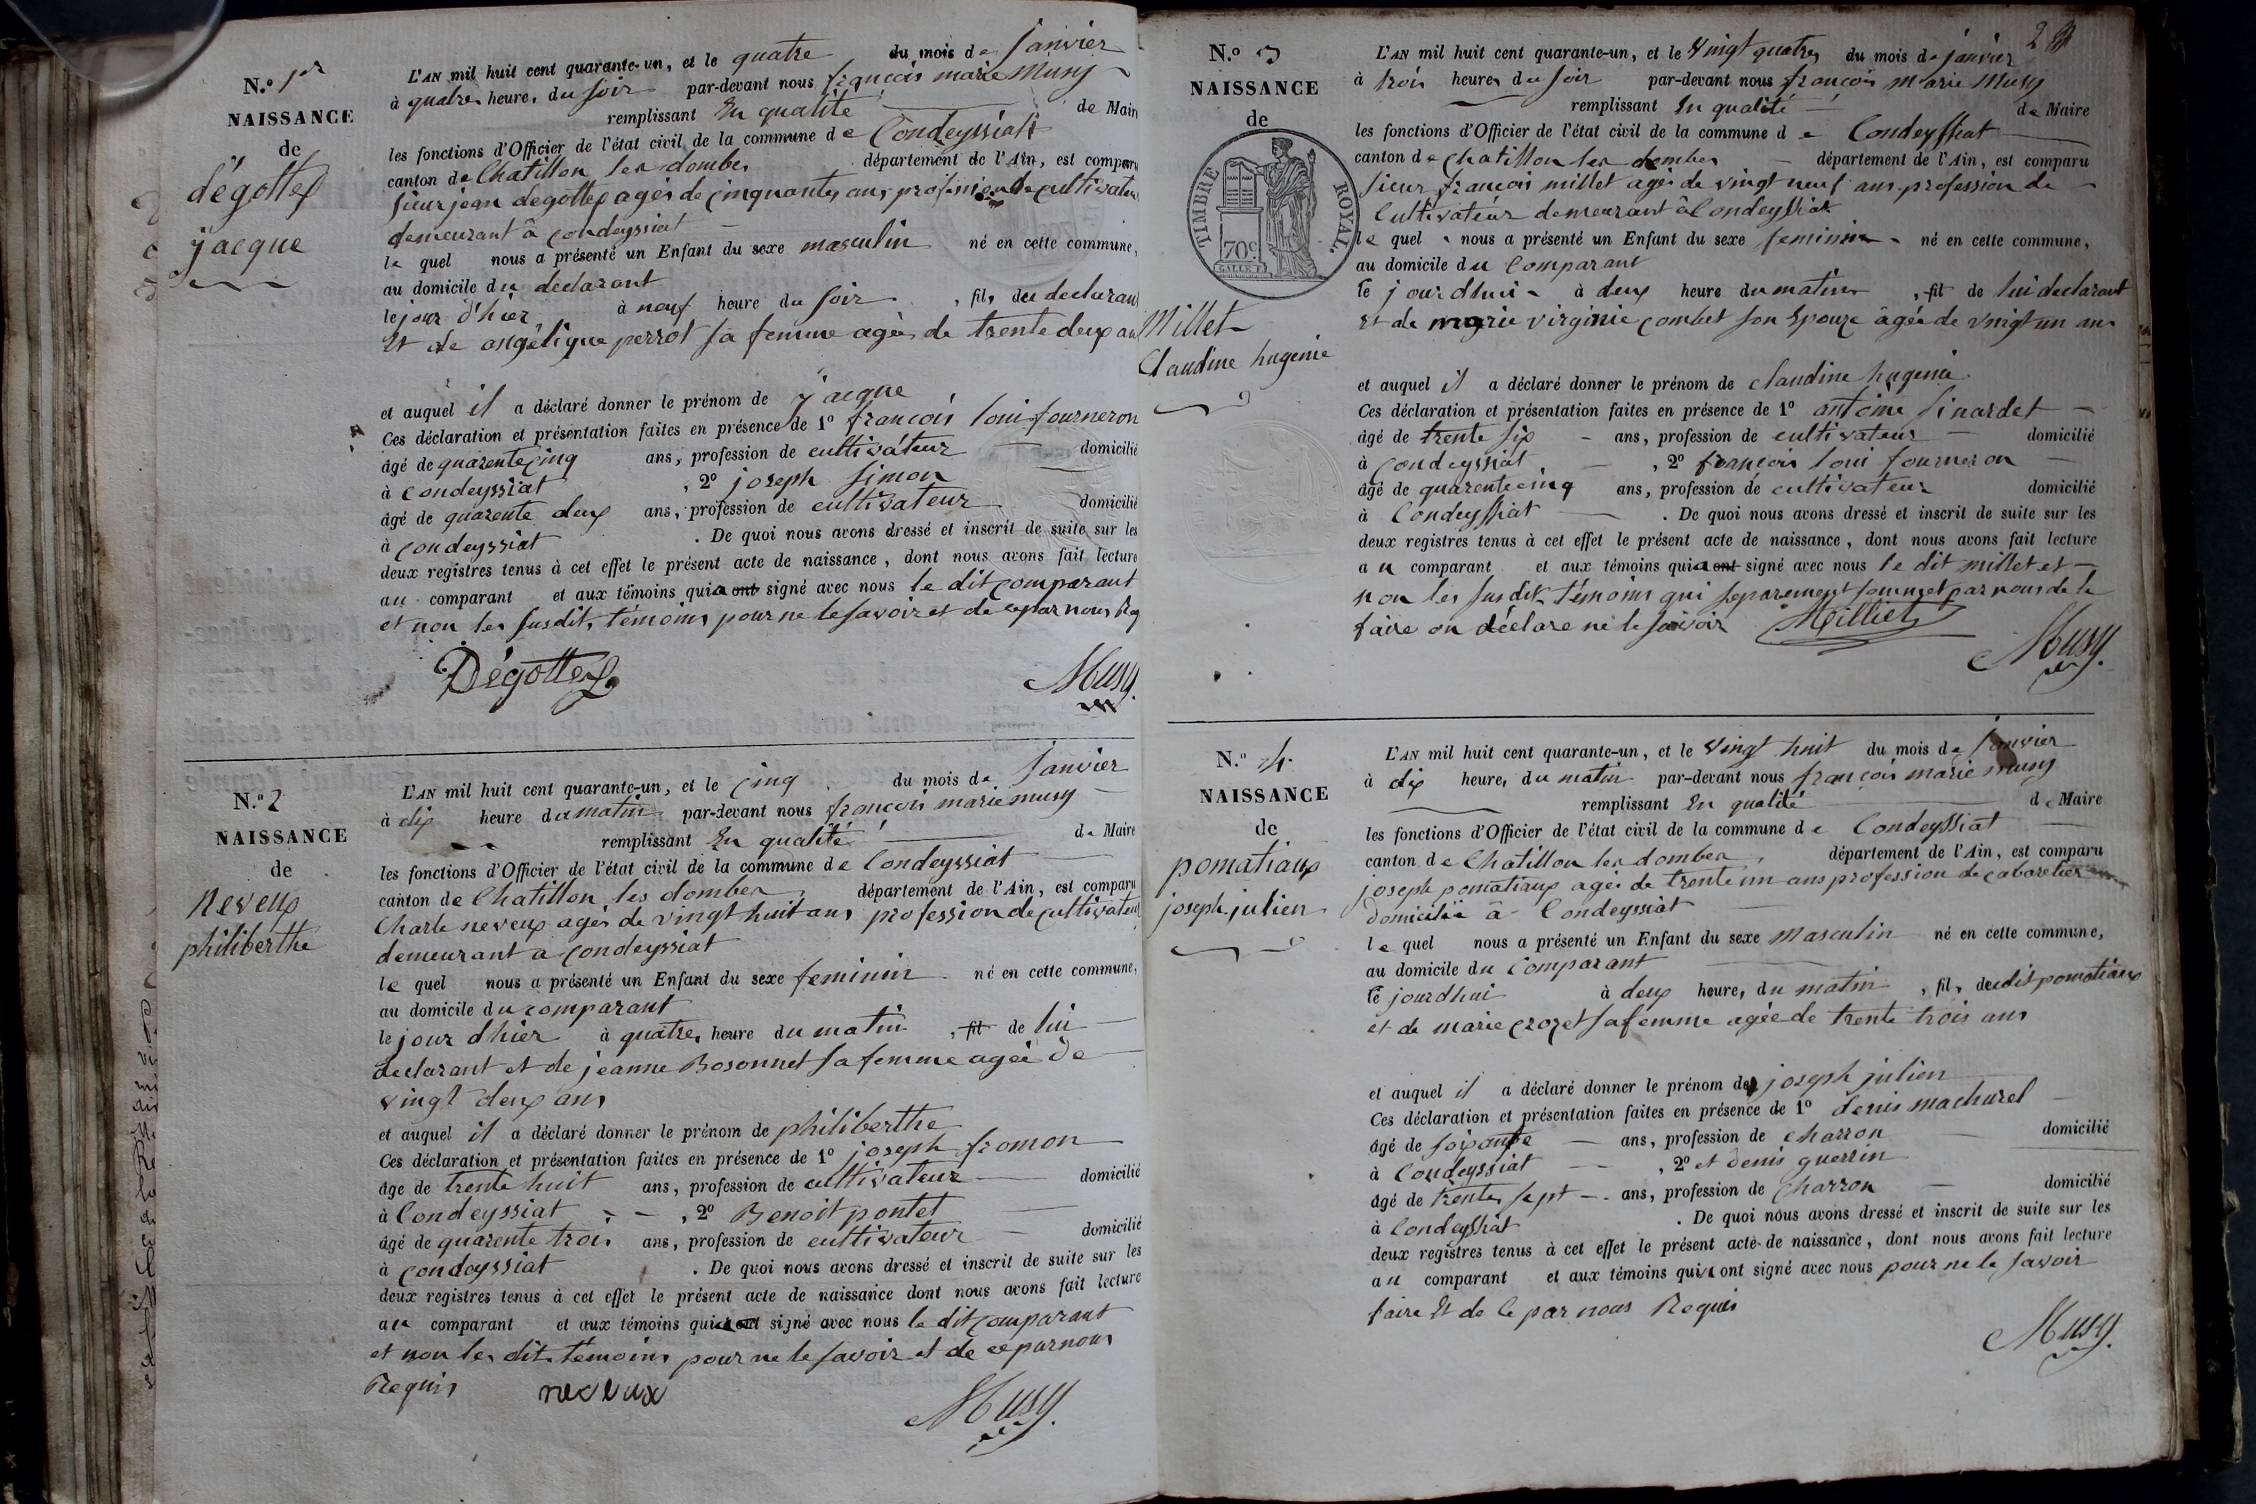 N.º 1er
NAISSANCE
de
dégottex
jacque
L'AN mil huit cent quarante-un, et le quatre du mois de Janvier
à quatre heure, du soir par-devant nous françois marie Musy
remplissant En qualité de Mair
les fonctions d'Officier de l'état civil de la commune de Condeyssiat
canton de Chatillon les dombes département de l'Ain, est comparu
sieur jean degottex agés de cinquante, ans profession de cultivateu
demeurant à condeyssiat
le quel nous a présenté un Enfant du sexe masculin né en cette commune,
au domicile du declarant
le jour d'hier à neuf heure du soir , fils du declaran
Et de angélique perrot sa femme agée de trente deux an
et auquel il a déclaré donner le prénom de jacque
Ces déclaration et présentation faites en présence de 1º françois loui fourneron
âgé de quarente cinq ans, profession de cultivateur domicilié
à condeyssiat , 2º joseph Simon
âgé de quarente deux ans, profession de cultivateur domicilié
à condeyssiat . De quoi nous avons dressé et inscrit de suite sur les
deux registres tenus à cet effet le présent acte de naissance, dont nous avons fait lecture
au comparant et aux témoins qui a ont signé avec nous le dit comparant
et non les susdits témoins pour ne le savoir et de ce par nous Req
Dégottex
Musy
N.º 2
NAISSANCE
de
neveux
philiberthe
L'AN mil huit cent quarante-un, et le cinq du mois de Janvier
à dix heure du matin par-devant nous françois marie musy
remplissant En qualité de Maire
les fonctions d'Officier de l'état civil de la commune de Condeyssiat
canton de Chatillon les dombes département de l'Ain, est comparu
Charle neveux agés de vingt huit ans profession de cultivateur
demeurant a condeyssiat
le quel nous a présenté un Enfant du sexe feminin né en cette commune,
au domicile du comparant
le jour d'hier à quatre, heure du matin , fil de lui
declarant et de jeanne Bosonnet sa femme agée de
vingt deux ans
et auquel il a déclaré donner le prénom de philiberthe
Ces déclaration et présentation faites en présence de 1º joseph fromon
âge de trente huit ans, profession de cultivateur domicilié
à Condeyssiat , 2º Benoit pontet
âgé de quarente trois ans, profession de cultivateur domicilié
à condeyssiat . De quoi nous avons dressé et inscrit de suite sur les
deux registres tenus à cet effet le présent acte de naissance dont nous avons fait lecture
au comparant et aux témoins qui a ont signé avec nous le dit comparant
et non les dits témoins pour ne le savoir et de ce par nous
Requis neveux
Musy
2
N.º 3
NAISSANCE
de
TIMBRE ROYAL.
70c.
Millet
Claudine hugenie
L'AN mil huit cent quarante-un, et le Vingt quatre, du mois de janvier
à trois heures du soir par-devant nous françois Marie Musy
remplissant En qualité de Maire
les fonctions d'Officier de l'état civil de la commune de Condeyssiat
canton de chatillon les dombes département de l'Ain, est comparu
sieur françois millet agés de vingt neuf ans profession de
Cultivateur demeurant à Condeyssiat
le quel nous a présenté un Enfant du sexe feminin né en cette commune,
au domicile du Comparant
le jourdhui à deux heure du matin , fil de lui declarant
Et de marie virginie combet son Epouze âgée de vingt un ans
et auquel il a déclaré donner le prénom de claudine hugenie
Ces déclaration et présentation faites en présence de 1º antoine Sinardet
âgé de trente six ans, profession de cultivateur domicilié
à Condeyssiat , 2º françois loui fourneron
âgé de quarente cinq ans, profession de cultivateur domicilié
à Condeyssiat . De quoi nous avons dressé et inscrit de suite sur les
deux registres tenus à cet effet le présent acte de naissance, dont nous avons fait lecture
au comparant et aux témoins qui a ont signé avec nous le dit millet et
non les susdits témoins qui séparement sommet par nous de le
faire on déclare ne le savoir Milliet
Musy
N.º 4
NAISSANCE
de
pomatiaux
joseph julien
L'AN mil huit cent quarante-un, et le Vingt huit du mois de Janvier
à dix heure, du matin par-devant nous françois marie musy
remplissant En qualité de Maire
les fonctions d'Officier de l'état civil de la commune de Condeyssiat
canton de Chatillon les dombes département de l'Ain, est comparu
joseph pomatiaux agés de trente un ans profession de cabaretier
domicilié à Condeyssiat
le quel nous a présenté un Enfant du sexe Masculin né en cette commune,
au domicile du Comparant
le jourdhui à deux heure, du matin , fils du dit pomatiaux
et de marie crozet sa femme agée de trente trois ans
et auquel il a déclaré donner le prénom de joseph julien
Ces déclaration et présentation faites en présence de 1º denis machurel
âgé de soixante ans, profession de charron domicilié
à Condeyssiat , 2º et denis guerrin
âgé de trente, sept ans, profession de Charron domicilié
à Condeyssiat . De quoi nous avons dressé et inscrit de suite sur les
deux registres tenus à cet effet le présent acte de naissance, dont nous avons fait lecture
au comparant et aux témoins qui n ont signé avec nous pour ne le savoir
faire Et de Ce par nous Requis
Musy